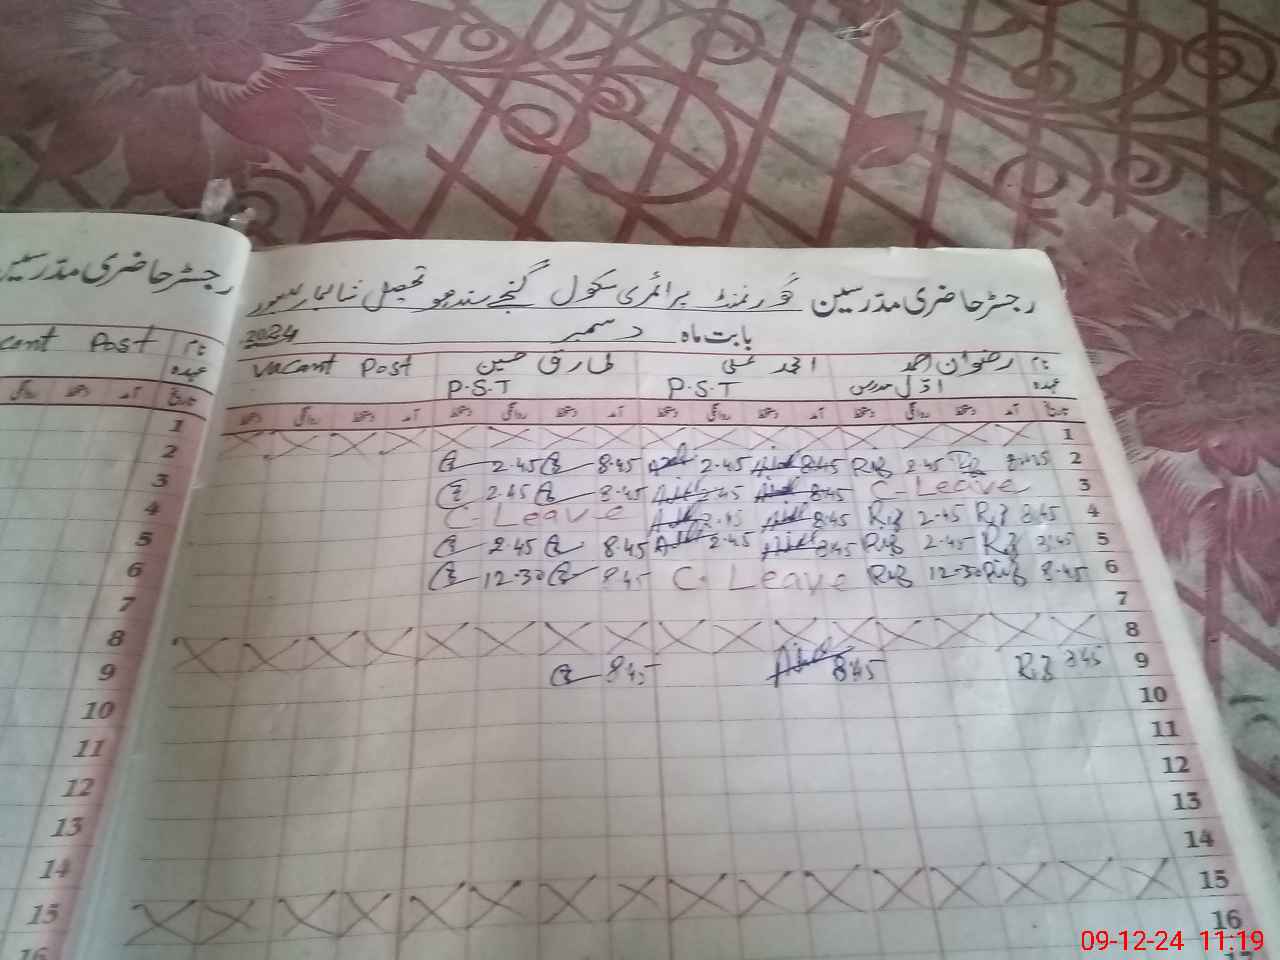 رجسٹر حاضری مدرسین گورنمنٹ پرائمری سکول گنجے سندھو تحصیل شالیمار لاہور
بابت ماہ دسمبر 2024
نام رضوان احمد امجد علی طارق حسین Vacant Post
عہدہ اوّل مدرس P.S.T P.S.T
تاریخ آمد دستخط روانگی دستخط آمد دستخط روانگی دستخط آمد دستخط روانگی دستخط آمد دستخط روانگی دستخط
1
2 8.45 Riz 2.45 Riz 8.45 2.45 8.45 2.45
3 C-Leave 8.45 2.45 8.45 2.45
4 8.45 Riz 2.45 Riz 8.45 2.45 C-Leave
5 8.45 Riz 2.45 Riz 8.45 2.45 8.45 2.45
6 8.45 Riz 12.30 Riz C. Leave 8.45 12.30
7
8
9 8.45 Riz 8.45 8.45
10
11
12
13
14
15
16
رجسٹر حاضری مدرسین
نام Post
عہدہ
تاریخ آمد دستخط روانگی
1
2
3
4
5
6
7
8
9
10
11
12
13
14
15
16
09-12-24 11:19